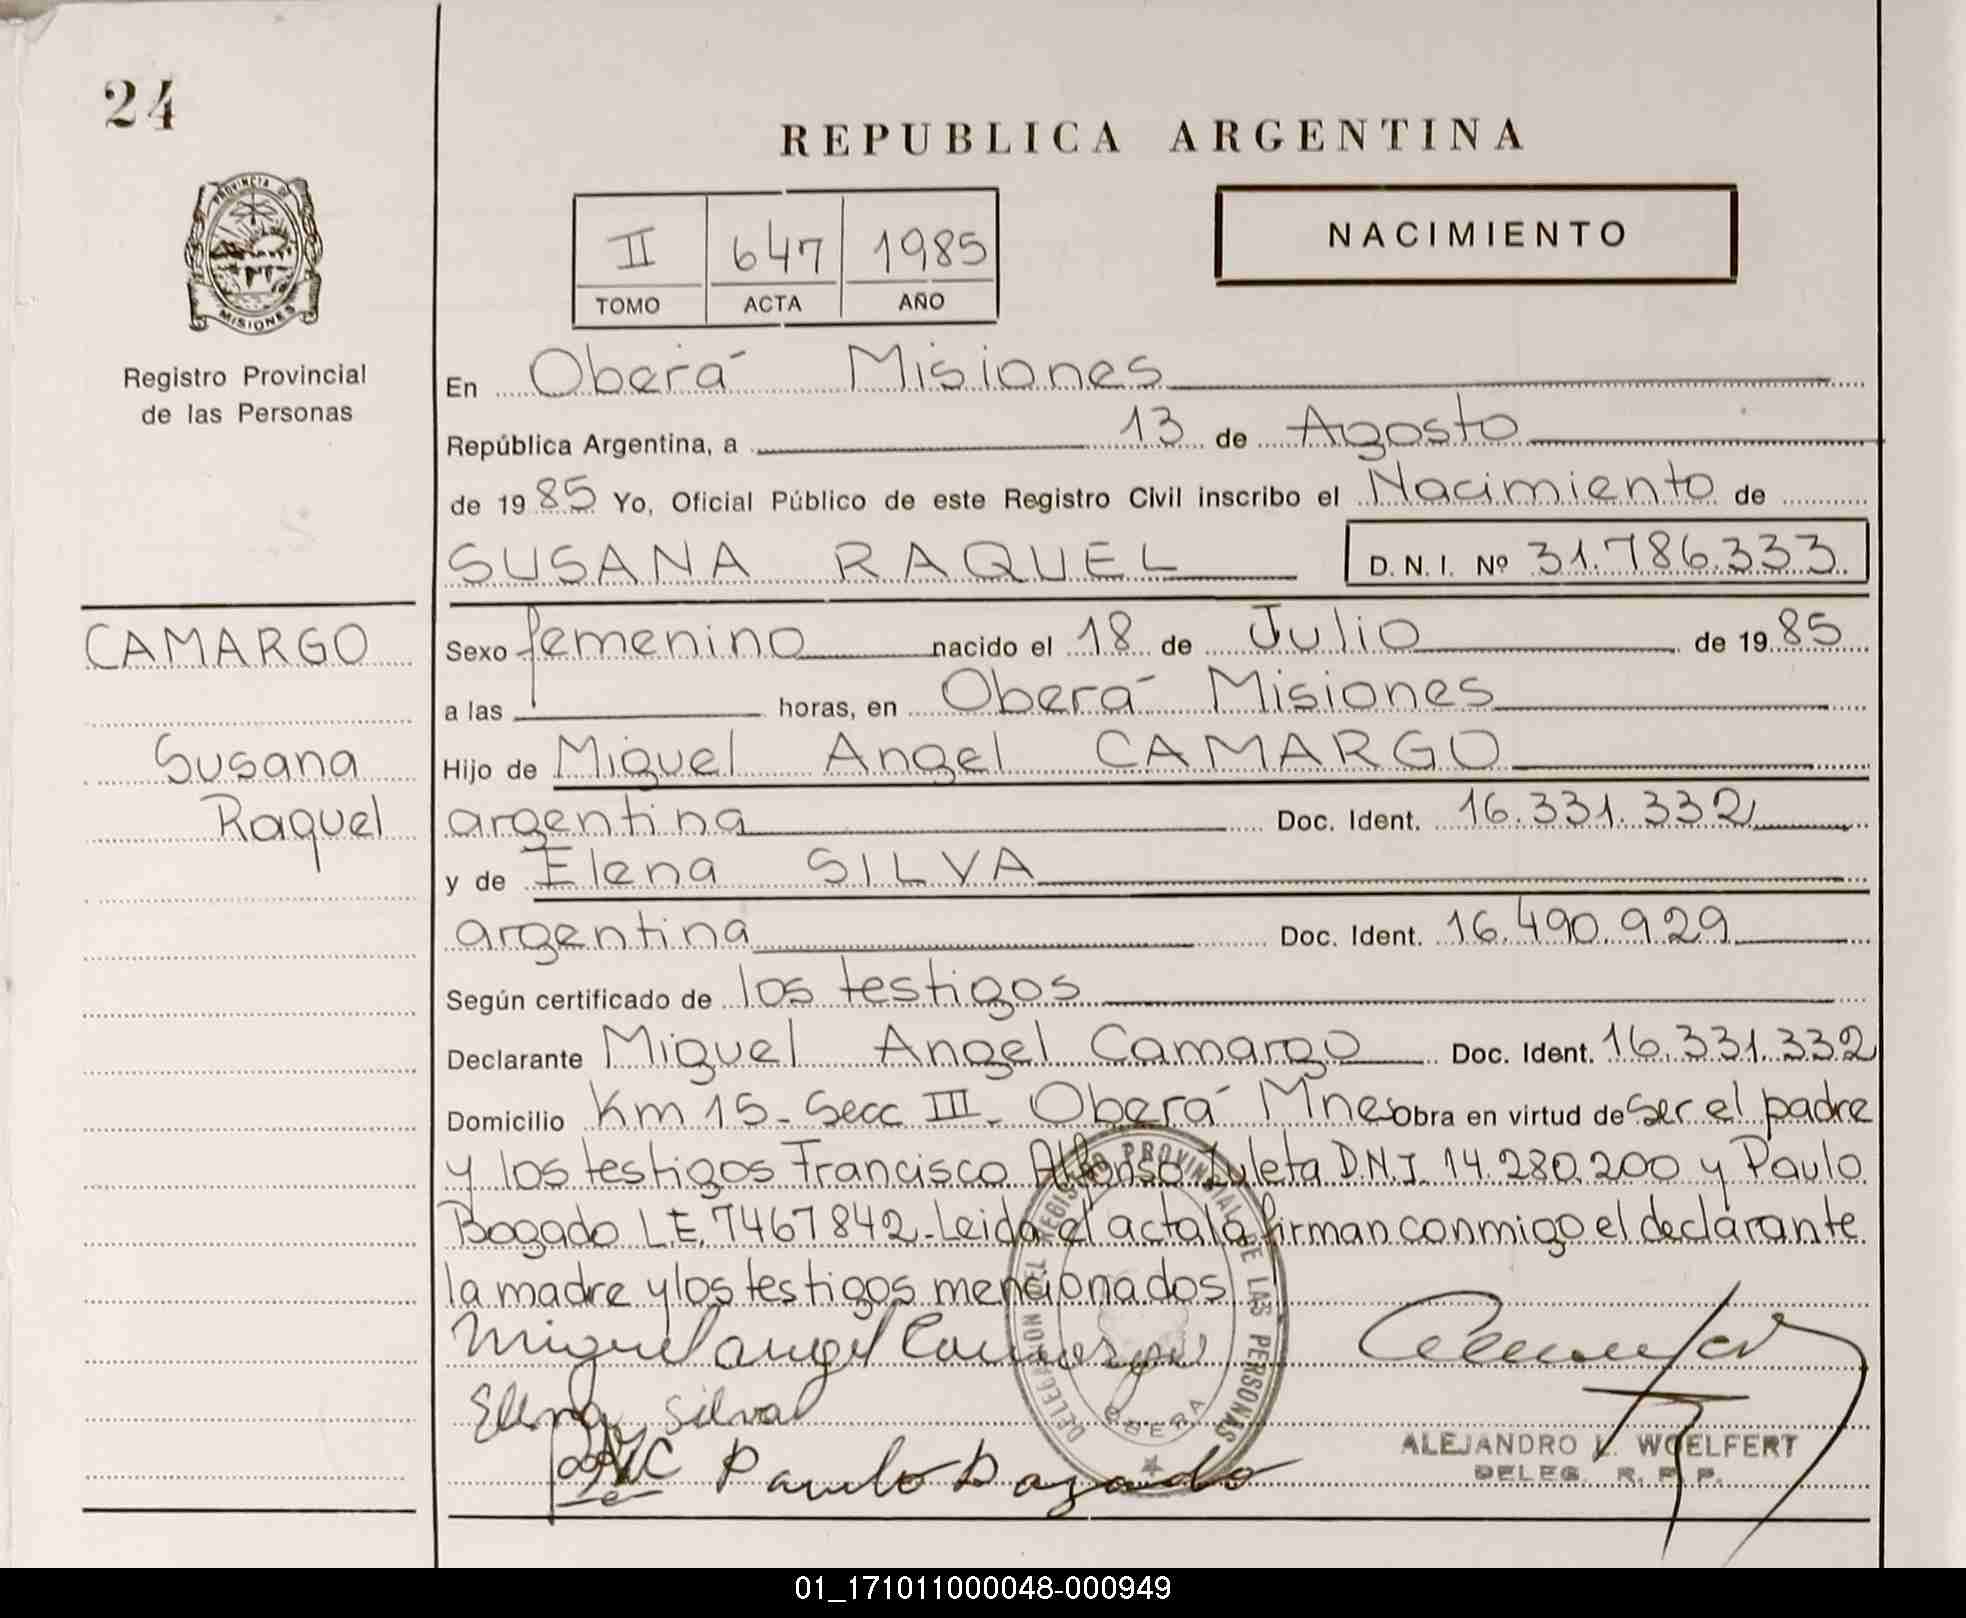 24
REPUBLICA ARGENTINA
PROVINCIA DE
MISIONES
Registro Provincial
de las Personas
II 647 1985
TOMO ACTA AÑO
NACIMIENTO
En Oberá Misiones
República Argentina, a 13 de Agosto
de 1985 Yo, Oficial Público de este Registro Civil inscribo el Nacimiento de
SUSANA RAQUEL D. N. I. Nº 31.786.333
CAMARGO
Susana
Raquel
Sexo femenino nacido el 18 de Julio de 1985
a las horas, en Oberá Misiones
Hijo de Miguel Angel CAMARGO
argentina Doc. Ident. 16.331.332
y de Elena SILVA
argentina Doc. Ident. 16.490.929
Según certificado de los testigos
Declarante Miguel Angel Camargo Doc. Ident. 16.331.332
Domicilio Km 15 - Secc III - Oberá Mnes Obra en virtud de ser el padre
y los testigos Francisco Alfonso Zuleta D.N.I. 14.280.200 y Paulo
Bogado L.E. 7467842 - Leida el acta la firman conmigo el declarante
la madre y los testigos mencionados
Miguel angel Camargo
Elena Silva
Paulo Bogado
DELEGACION DEL REGISTRO PROVINCIAL DE LAS PERSONAS
OBERA
ALEJANDRO L. WOELFERT
DELEG. R. P. P.
01_171011000048-000949